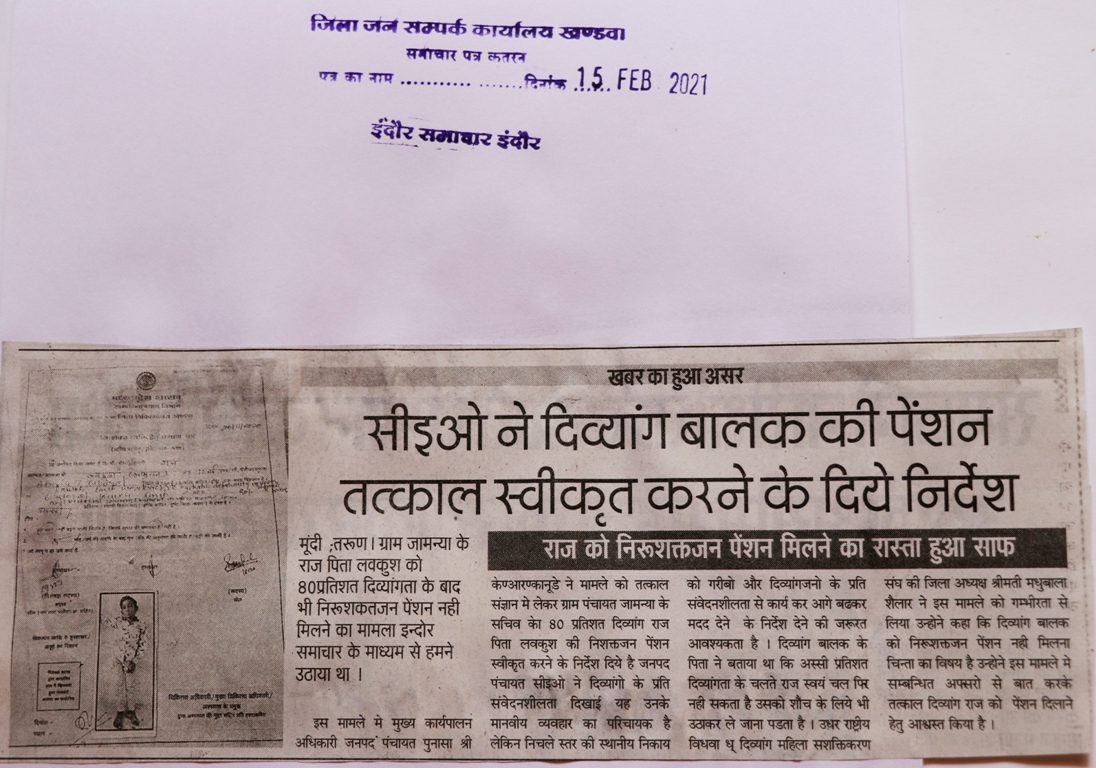 जिला जन सम्पर्क कार्यालय खण्डवा
समाचार पत्र कतरन
पत्र का नाम ........... .......दिनांक ...... 15 FEB 2021
इंदौर समाचार इंदौर
खबर का हुआ असर
सीइओ ने दिव्यांग बालक की पेंशन
तत्काल स्वीकृत करने के दिये निर्देश
राज को निरूशक्तजन पेंशन मिलने का रास्ता हुआ साफ
मूंदी ,तरूण। ग्राम जामन्या के
राज पिता लवकुश को
80प्रतिशत दिव्यांगता के बाद
भी निरूशकतजन पेंशन नही
मिलने का मामला इन्दोर
समाचार के माध्यम से हमने
उठाया था ।
इस मामले मे मुख्य कार्यपालन
अधिकारी जनपद पंचायत पुनासा श्री
केण्आरण्कानूडे ने मामले को तत्काल
संज्ञान मे लेकर ग्राम पंचायत जामन्या के
सचिव को 80 प्रतिशत दिव्यांग राज
पिता लवकुश की निशक्तजन पेंशन
स्वीकृत करने के निर्देश दिये है जनपद
पंचायत सीइओ ने दिव्यांगो के प्रति
संवेदनशीलता दिखाई यह उनके
मानवीय व्यवहार का परिचायक है
लेकिन निचले स्तर की स्थानीय निकाय
को गरीबो और दिव्यांगजनो के प्रति
संवेदनशीलता से कार्य कर आगे बढकर
मदद देने के निर्देश देने की जरूरत
आवश्यकता है । दिव्यांग बालक के
पिता ने बताया था कि अस्सी प्रतिशत
दिव्यांगता के चलते राज स्वयं चल फिर
नही सकता है उसको शौच के लिये भी
उठाकर ले जाना पडता है । उधर राष्ट्रीय
विधवा ध् दिव्यांग महिला सशक्तिकरण
संघ की जिला अध्यक्ष श्रीमती मधुबाला
शैलार ने इस मामले को गम्भीरता से
लिया उन्होने कहा कि दिव्यांग बालक
को निरूशक्तजन पेंशन नही मिलना
चिन्ता का विषय है उन्होने इस मामले मे
सम्बन्धित अफ्सरो से बात करके
तत्काल दिव्यांग राज को पेंशन दिलाने
हेतु आश्वस्त किया है ।